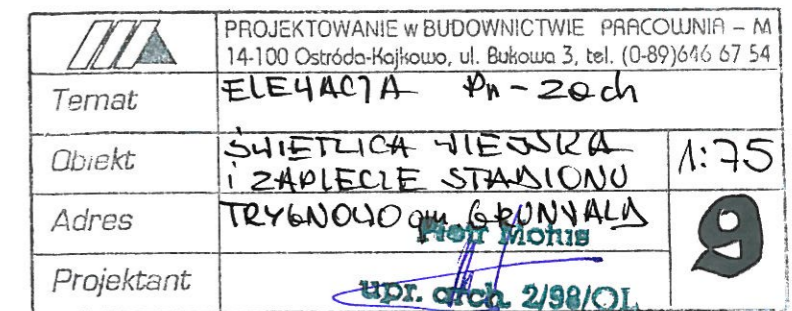 PROJEKTOWANIE w BUDOWNICTWIE PRACOWNIA – M
14-100 Ostróda-Kajkowo, ul. Bukowa 3, tel. (0-89)646 67 54
Temat ELEWACJA Pn-zach
Obiekt ŚWIETLICA WIEJSKA
i ZAPLECZE STADIONU 1:75
Adres TRYGNOWO gm GRUNWALD
9
Piotr Mohis
Projektant upr. arch. 2/98/OL